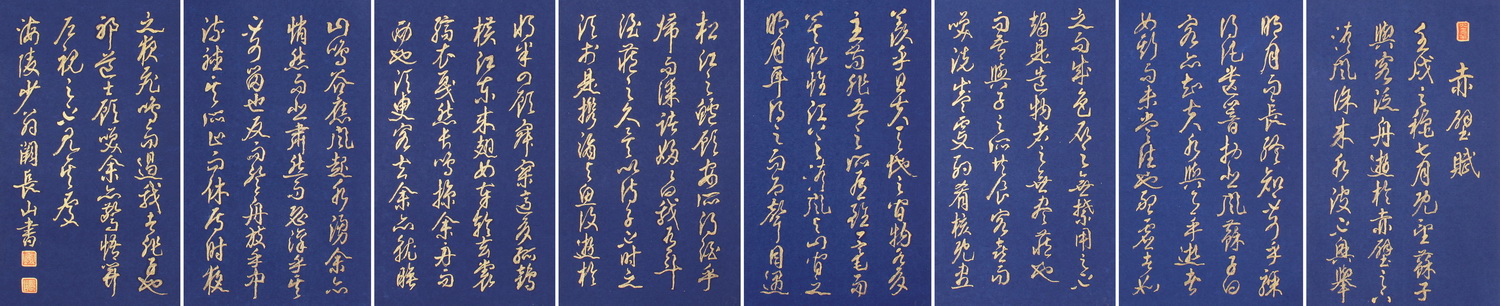 赤壁賦
壬戌之秋七月既望蘇子
與客泛舟遊於赤壁之下
清風徐來水波不興舉
明月而長終知不可乎驟
得託遺響於悲風蘇子曰
客亦知夫水與月乎逝者
如斯而未嘗往也盈虛者如
之而成色取之無禁用之不
竭是造物者之無盡藏也
而吾與子之所共食客喜而
笑洗盞更酌肴核既盡
羨乎且夫天地之間物各有
主苟非吾之所有雖一毫而
莫取惟江上之清風與山間之
明月耳得之而為聲目遇
松江之鱸顧安所得酒乎
歸而謀諸婦婦曰我有斗
酒藏之久矣以待子不時之
須於是攜酒與魚復遊於
將半四顧寂寥適有孤鶴
橫江東來翅如車輪玄裳
縞衣戛然長鳴掠余舟而
西也須臾客去余亦就睡
山鳴谷應風起水湧余亦
悄然而悲肅然而恐凜乎其
不可留也反而登舟放乎中
流聽其所止而休焉時夜
之夜飛鳴而過我者非子也
耶道士顧笑余亦驚悟開
戶視之不見其處
海陵少翁闞長山書